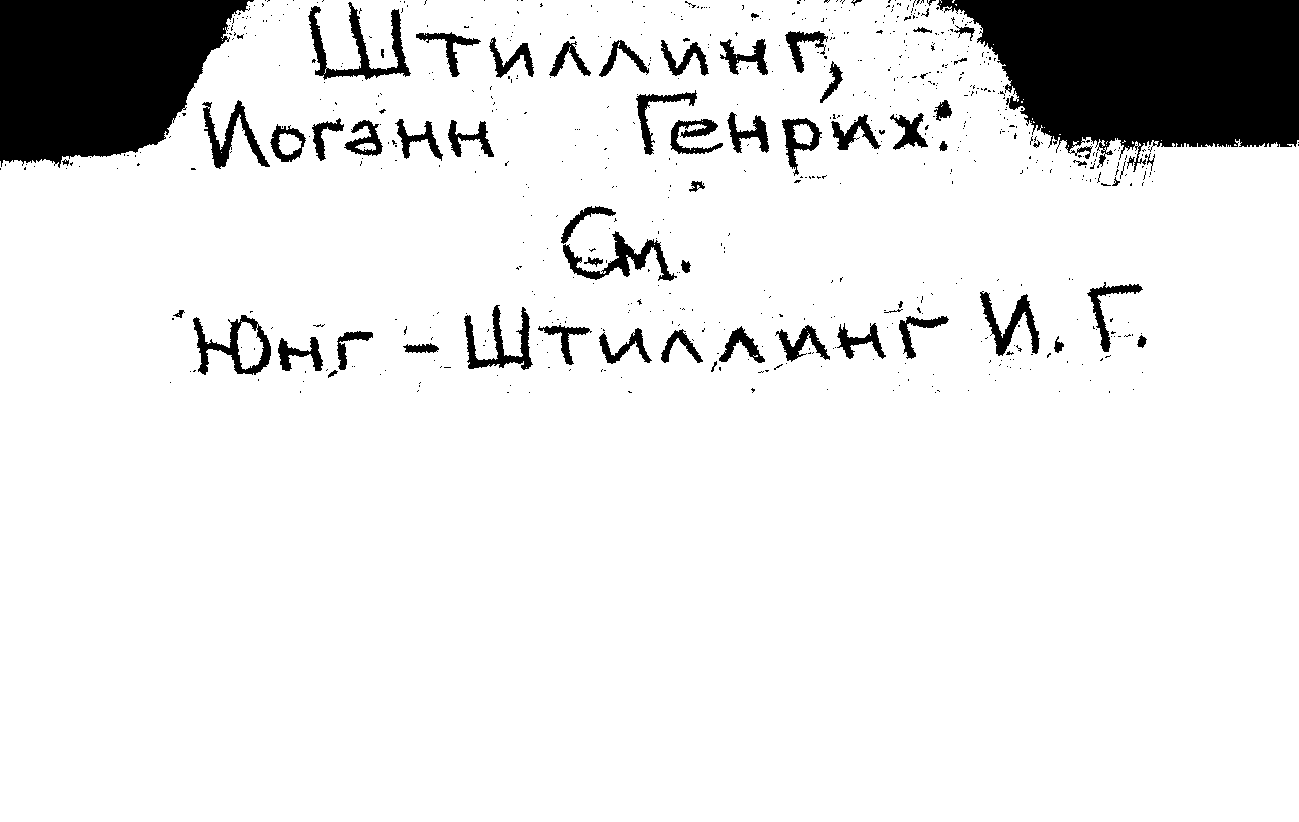 Штиллинг,
Иоганн Генрих:
См.
Юнг-Штиллинг И. Г.